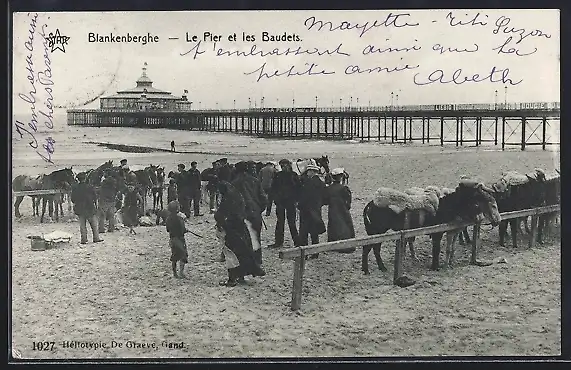 Blankenberghe — Le Pier et les Baudets.
Mayette - Titi Suzon
t'embrassent ainsi que la
petite amie Abeth
STAR
1027 Héliotypie De Graeve, Gand.